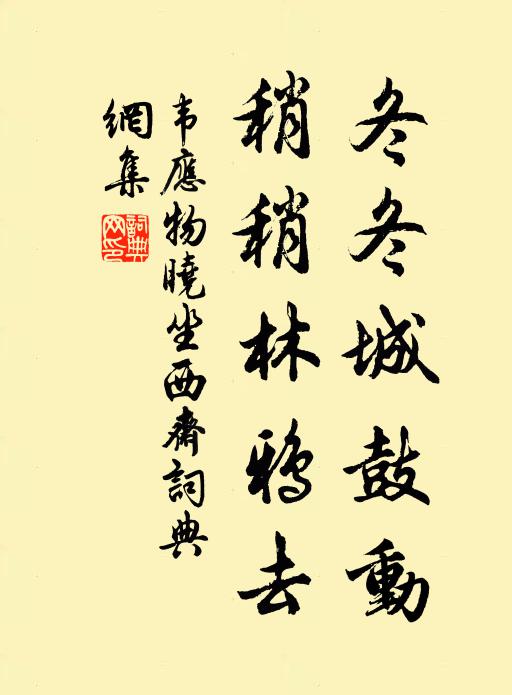 冬冬城鼓動
稍稍林鴉去
韦應物曉坐西齋詞典
網集
詞典網印